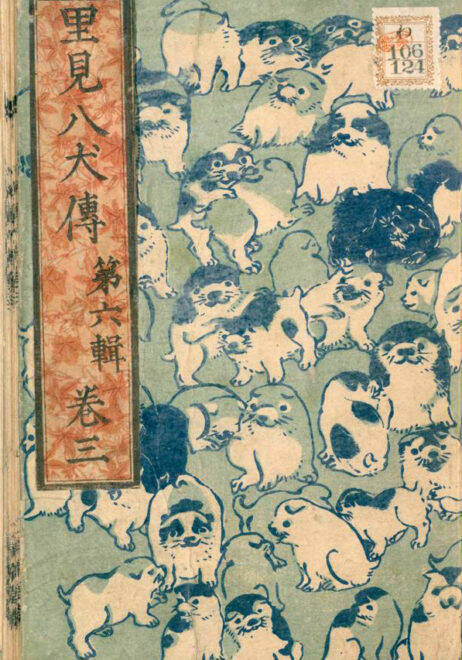 里見八犬傳 第六輯 巻三
106
124